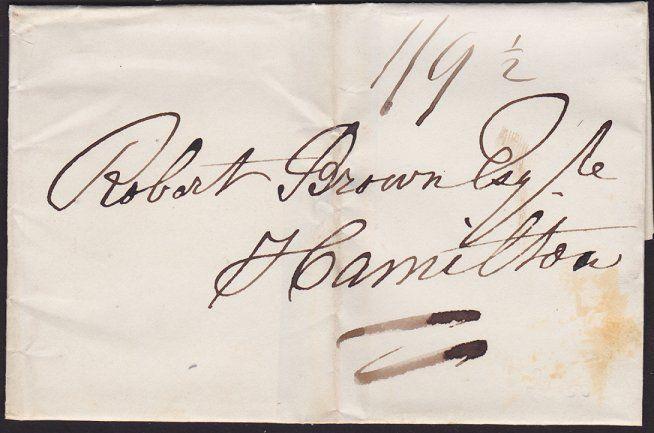 1/9 ½
Robert Brown Esqre
Hamilton